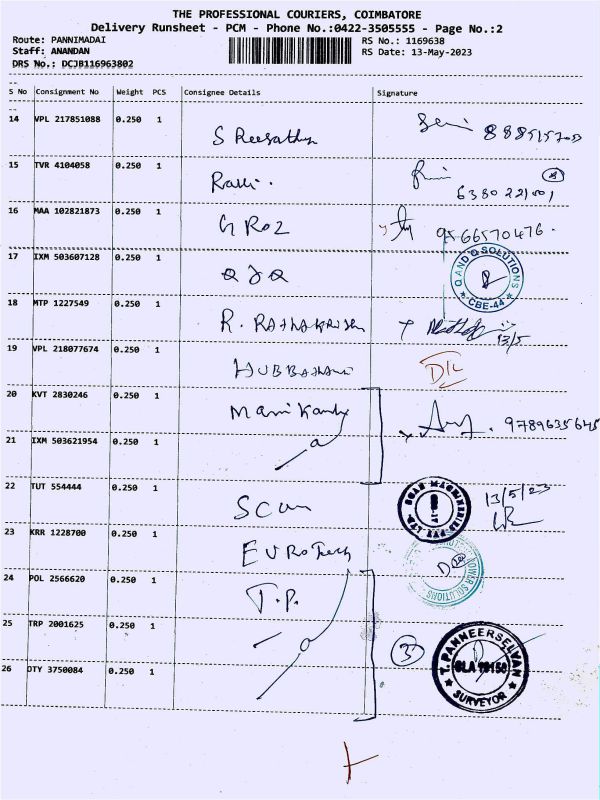 THE PROFESSIONAL COURIERS, COIMBATORE
Delivery Runsheet - PCM - Phone No.:0422-3505555 - Page No.:2
Route: PANNIMADAI
Staff: ANANDAN
DRS No.: DCJB116963802
RS No.: 1169638
RS Date: 13-May-2023
S No Consignment No Weight PCS Consignee Details Signature
14 VPL 217851088 0.250 1
15 TVR 4104058 0.250 1
6380221001
16 MAA 102821873 0.250 1 GROZ 9566570476.
17 IXM 503607128 0.250 1 Q J Q
Q AND Q SOLUTIONS
CBE-44
18 MTP 1227549 0.250 1 R. RATHAKRISH
13/5
19 VPL 218077674 0.250 1
20 KVT 2830246 0.250 1 Manikandy 9789635645
21 IXM 503621954 0.250 1
22 TUT 554444 0.250 1 SCM 13/5/23
23 KRR 1228700 0.250 1 EUROTech
24 POL 2566620 0.250 1 T.P.
25 TRP 2001625 0.250 1
3
T. PANNEERSELVAN
SURVEYOR
26 OTY 3750084 0.250 1